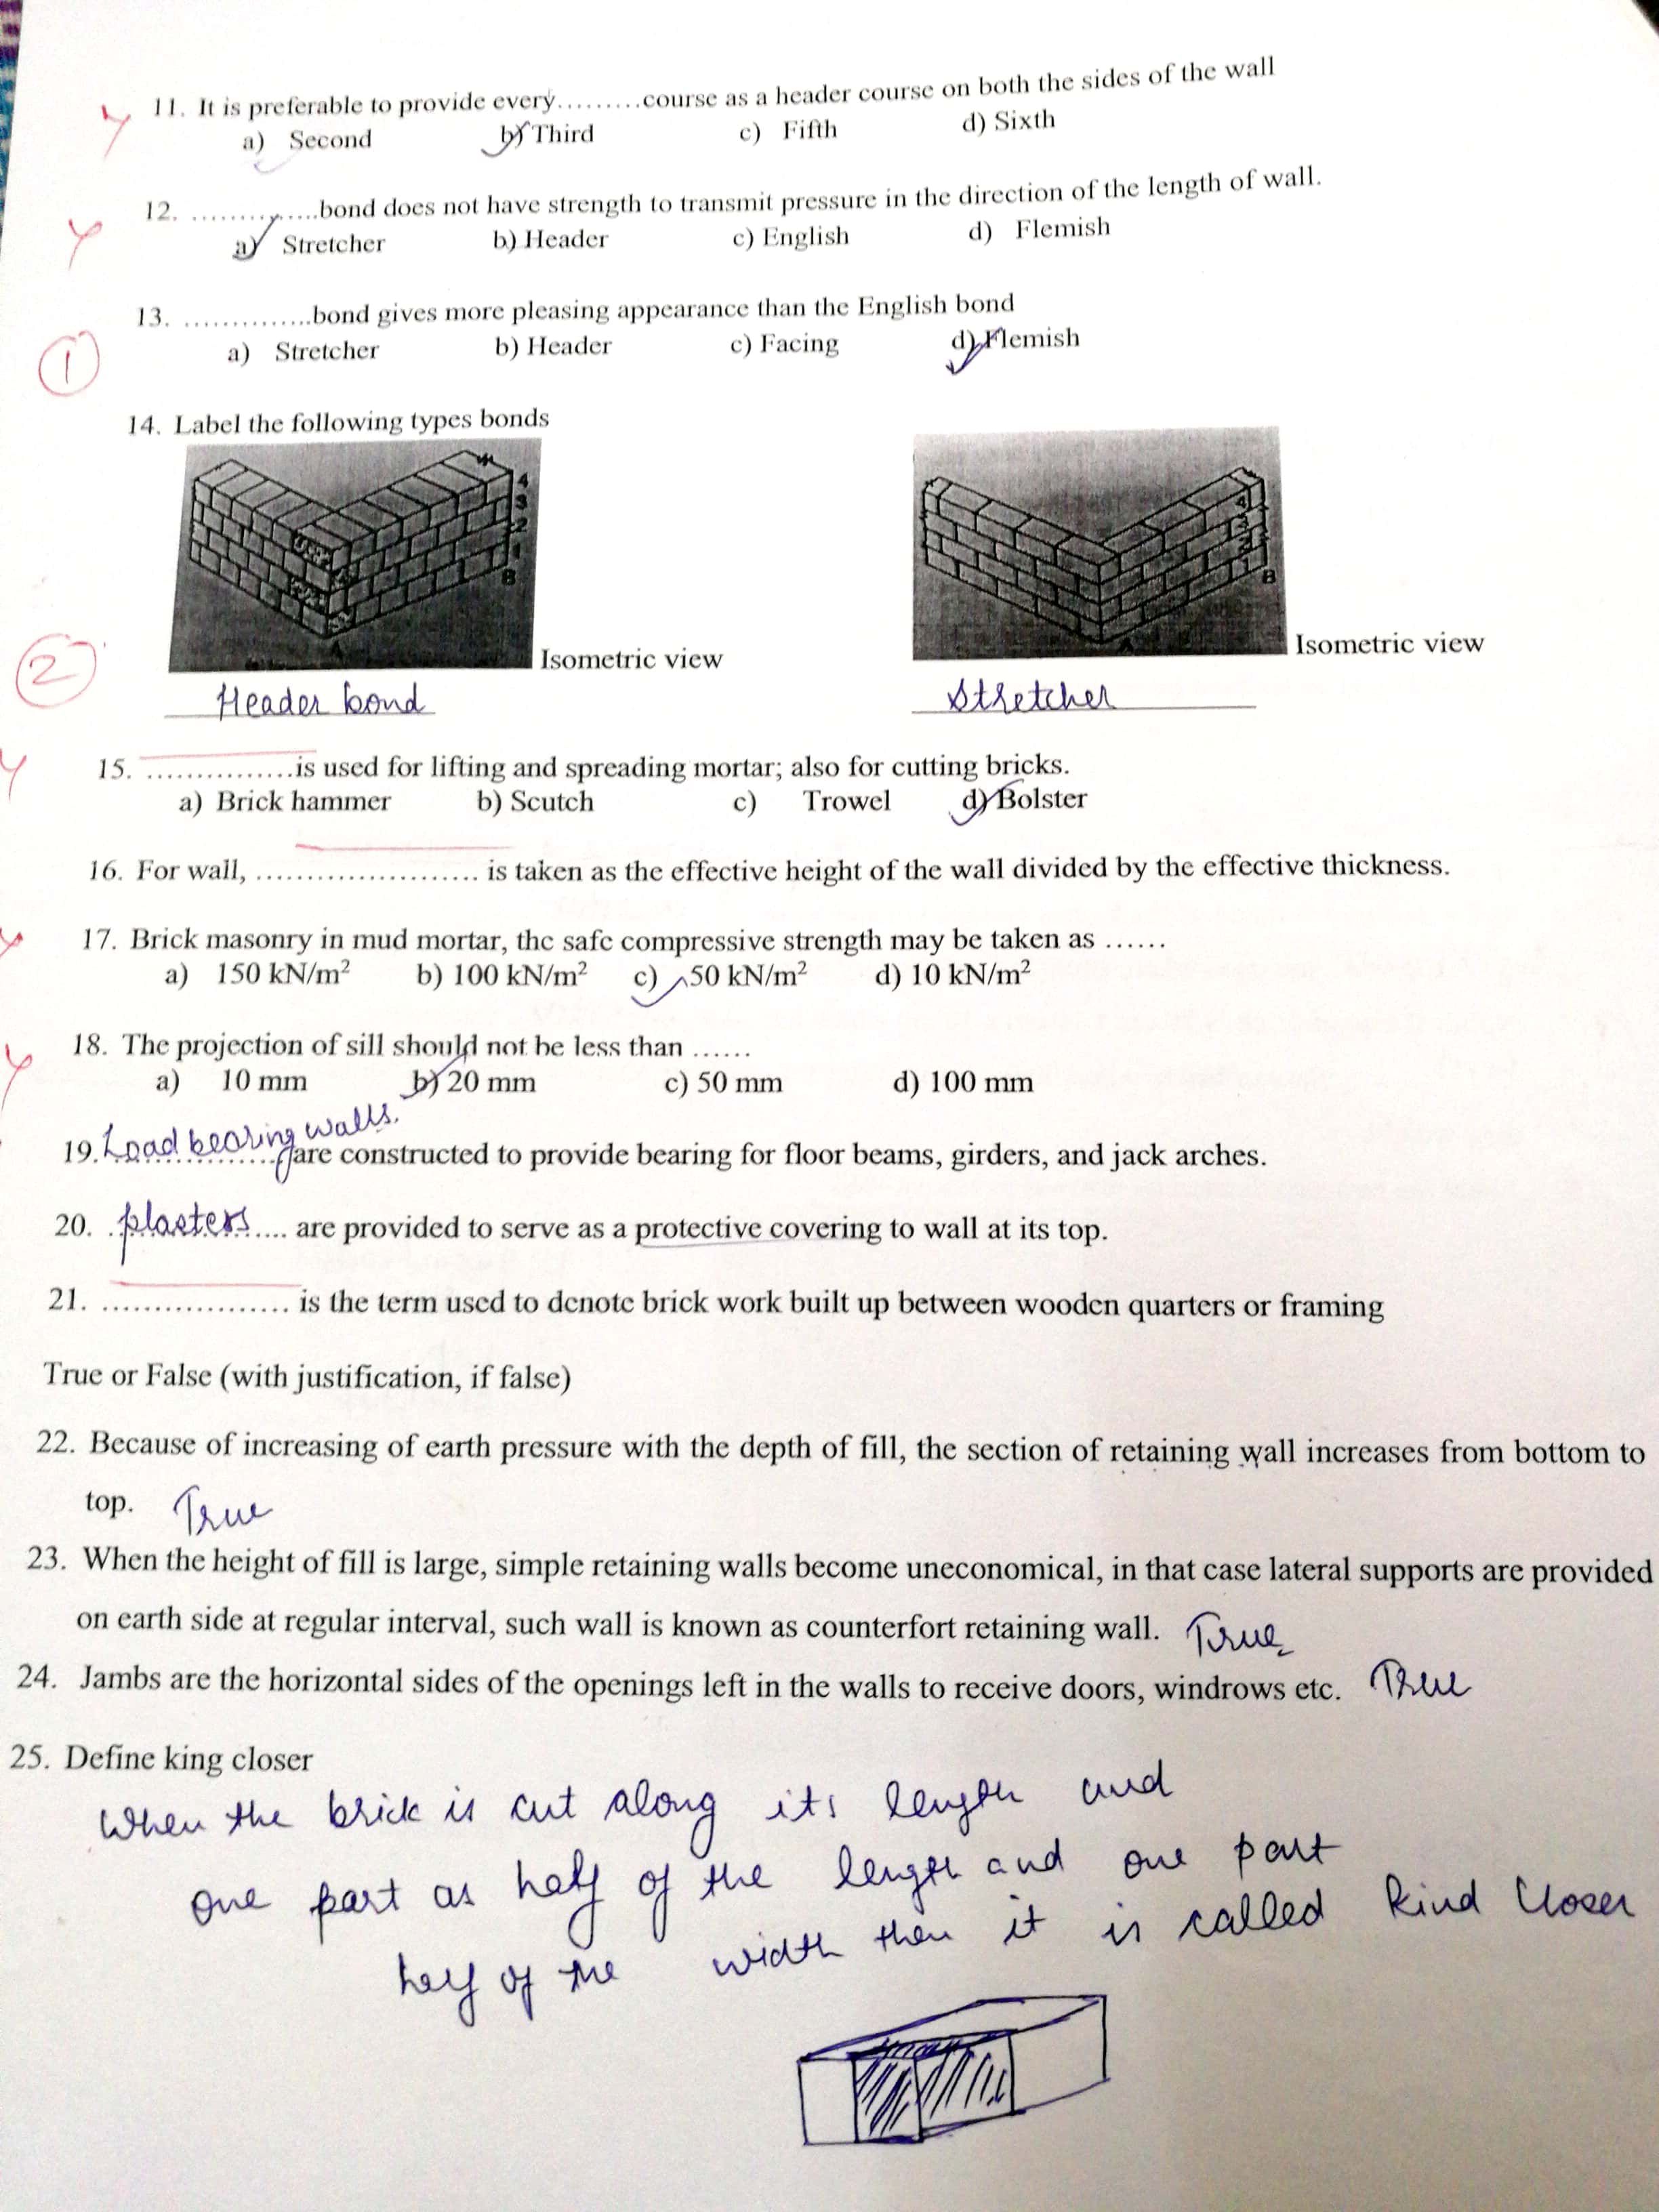 11. It is preferable to provide every.........course as a header course on both the sides of the wall
a) Second b) Third c) Fifth d) Sixth
12. ..............bond does not have strength to transmit pressure in the direction of the length of wall.
a) Stretcher b) Header c) English d) Flemish
13. ..............bond gives more pleasing appearance than the English bond
1
a) Stretcher b) Header c) Facing d) Flemish
14. Label the following types bonds
4
3
2
1
B
A
4
3
2
1
B
A
2
Isometric view Isometric view
Header bond Stretcher
15. ...............is used for lifting and spreading mortar; also for cutting bricks.
a) Brick hammer b) Scutch c) Trowel d) Bolster
16. For wall, ...................... is taken as the effective height of the wall divided by the effective thickness.
17. Brick masonry in mud mortar, the safe compressive strength may be taken as ......
a) 150 kN/m² b) 100 kN/m² c) 50 kN/m² d) 10 kN/m²
18. The projection of sill should not be less than ......
a) 10 mm b) 20 mm c) 50 mm d) 100 mm
19. Load bearing walls. are constructed to provide bearing for floor beams, girders, and jack arches.
20. plasters .... are provided to serve as a protective covering to wall at its top.
21. .................. is the term used to denote brick work built up between wooden quarters or framing
True or False (with justification, if false)
22. Because of increasing of earth pressure with the depth of fill, the section of retaining wall increases from bottom to
top. True
23. When the height of fill is large, simple retaining walls become uneconomical, in that case lateral supports are provided
on earth side at regular interval, such wall is known as counterfort retaining wall. True
24. Jambs are the horizontal sides of the openings left in the walls to receive doors, windrows etc. True
25. Define king closer
When the brick is cut along its length and
one part as half of the length and one part
half of the width then it is called Kind Closer